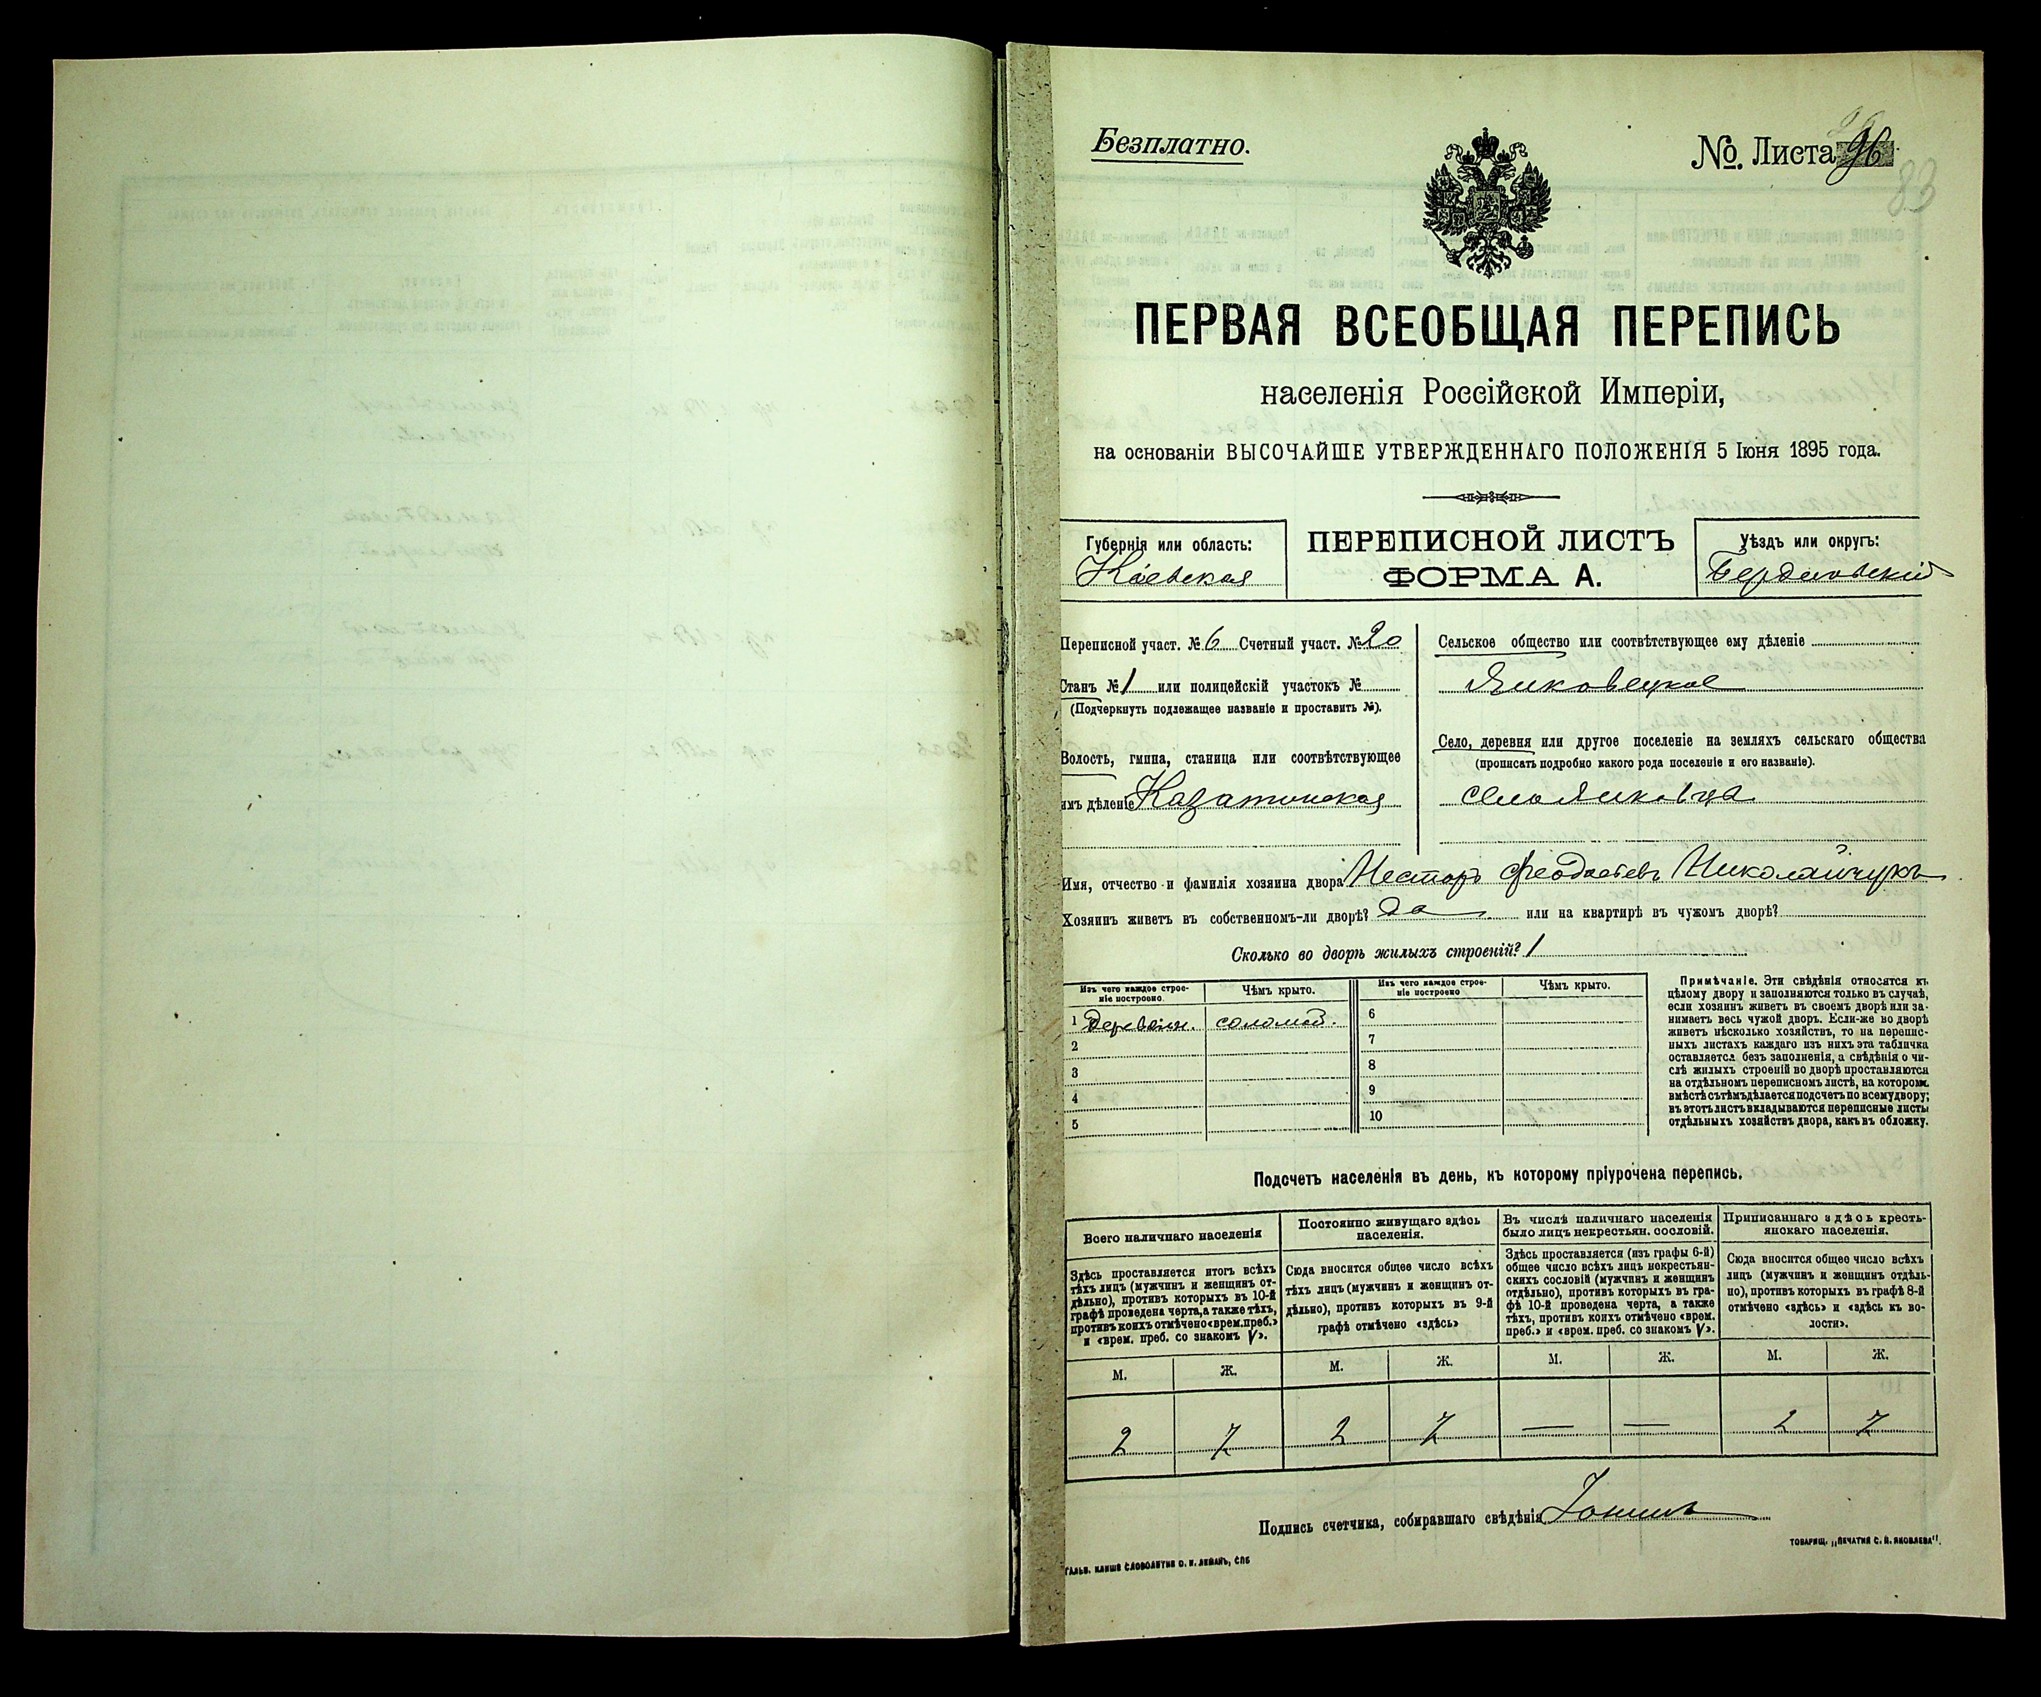 Безплатно.
№. Листа 96
83
ПЕРВАЯ ВСЕОБЩАЯ ПЕРЕПИСЬ
населенія Россійской Имперіи,
на основаніи ВЫСОЧАЙШЕ УТВЕРЖДЕННАГО ПОЛОЖЕНІЯ 5 Іюня 1895 года.
Губернія или область:
Кіевская
ПЕРЕПИСНОЙ ЛИСТЪ
ФОРМА А.
Уѣздъ или округъ:
Бердичевскій
Переписной участ. № 6 Счетный участ. № 20
Станъ № 1 или полицейскій участокъ №
(Подчеркнуть подлежащее названіе и проставить №).
Волость, гмина, станица или соотвѣтствующее
имъ дѣленіе Казатинская
Сельское общество или соотвѣтствующее ему дѣленіе
Яиковецкое
Село, деревня или другое поселеніе на земляхъ сельскаго общества
(прописать подробно какого рода поселеніе и его названіе).
село
Имя, отчество и фамилія хозяина двора Несторъ Феодосіевъ Николайчукъ
Хозяинъ живетъ въ собственномъ-ли дворѣ? да или на квартирѣ въ чужомъ дворѣ?
Сколько во дворѣ жилыхъ строеній? 1
Изъ чего каждое строеніе построено
Чѣмъ крыто.
Изъ чего каждое строеніе построено
Чѣмъ крыто.
1 Деревян. соломой.
2
3
4
5
6
7
8
9
10
Примѣчаніе. Эти свѣдѣнія относятся къ
цѣлому двору и заполняются только въ случаѣ,
если хозяинъ живетъ въ своемъ дворѣ или за-
нимаетъ весь чужой дворъ. Если-же во дворѣ
живетъ нѣсколько хозяйствъ, то на перепис-
ныхъ листахъ каждаго изъ нихъ эта табличка
оставляется безъ заполненія, а свѣдѣнія о чи-
слѣ жилыхъ строеній во дворѣ проставляются
на отдѣльномъ переписномъ листѣ, на которомъ
вмѣстѣ съ тѣмъ дѣлается подсчетъ по всему двору;
въ этотъ листъ вкладываются переписные листы
отдѣльныхъ хозяйствъ двора, какъ въ обложку.
Подсчетъ населенія въ день, къ которому пріурочена перепись.
Всего наличнаго населенія
Здѣсь проставляется итогъ всѣхъ
тѣхъ лицъ (мужчинъ и женщинъ от-
дѣльно), противъ которыхъ въ 10-й
графѣ проведена черта, а также тѣхъ,
противъ коихъ отмѣчено «врем. преб.»
и «врем. преб. со знакомъ V».
Постоянно живущаго здѣсь
населенія.
Сюда вносится общее число всѣхъ
тѣхъ лицъ (мужчинъ и женщинъ от-
дѣльно), противъ которыхъ въ 9-й
графѣ отмѣчено «здѣсь»
Въ числѣ наличнаго населенія
было лицъ некрестьян. сословій.
Здѣсь проставляется (изъ графы 6-й)
общее число всѣхъ лицъ некрестьян-
скихъ сословій (мужчинъ и женщинъ
отдѣльно), противъ которыхъ въ гра-
фѣ 10-й проведена черта, а также
тѣхъ, противъ коихъ отмѣчено «врем.
преб.» и «врем. преб. со знакомъ V».
Приписаннаго здѣсь кресть-
янскаго населенія.
Сюда вносится общее число всѣхъ
лицъ (мужчинъ и женщинъ отдѣль-
но), противъ которыхъ въ графѣ 8-й
отмѣчено «здѣсь» и «здѣсь къ во-
лости».
М. Ж. М. Ж. М. Ж. М. Ж.
2 7 2 7 — — 2 7
Подпись счетчика, собиравшаго свѣдѣнія
ГАЛЬВ. КЛИШЕ СЛОВОЛИТНИ О. И. ЛЕМАНЪ, СПБ
ТОВАРИЩ. „ПЕЧАТНЯ С. П. ЯКОВЛЕВА".